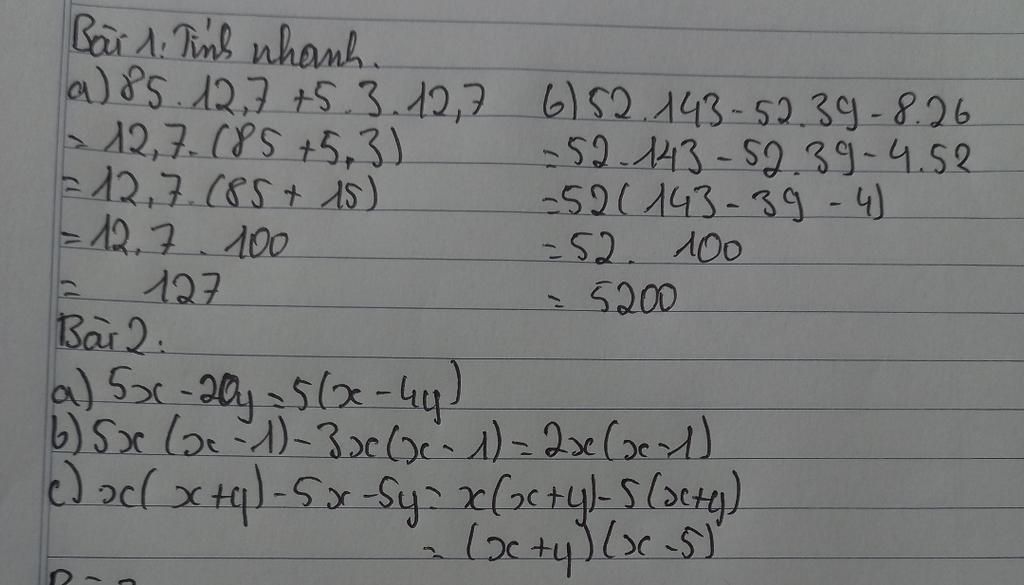 Bài 1: Tính nhanh.
a) 85.12,7 + 5.3.12,7 b) 52.143 - 52.39 - 8.26
= 12,7.(85 + 5,3) = 52.143 - 52.39 - 4.52
= 12,7.(85 + 15) = 52(143 - 39 - 4)
= 12,7 . 100 = 52. 100
= 127 = 5200
Bài 2:
a) 5x - 20y = 5(x - 4y)
b) 5x (x - 1) - 3x(x - 1) = 2x(x - 1)
c) x( x + y) - 5x - 5y = x(x + y) - 5(x+y)
= (x + y)(x - 5)